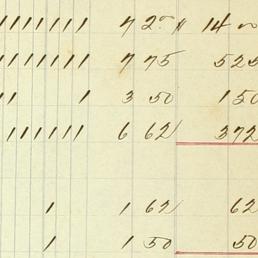 1111111 7 2.00 $ 14 00
1111111 7 75 525
11 1 3 50 150
111111 6 62 372
1 1 62 62
1 1 50 50